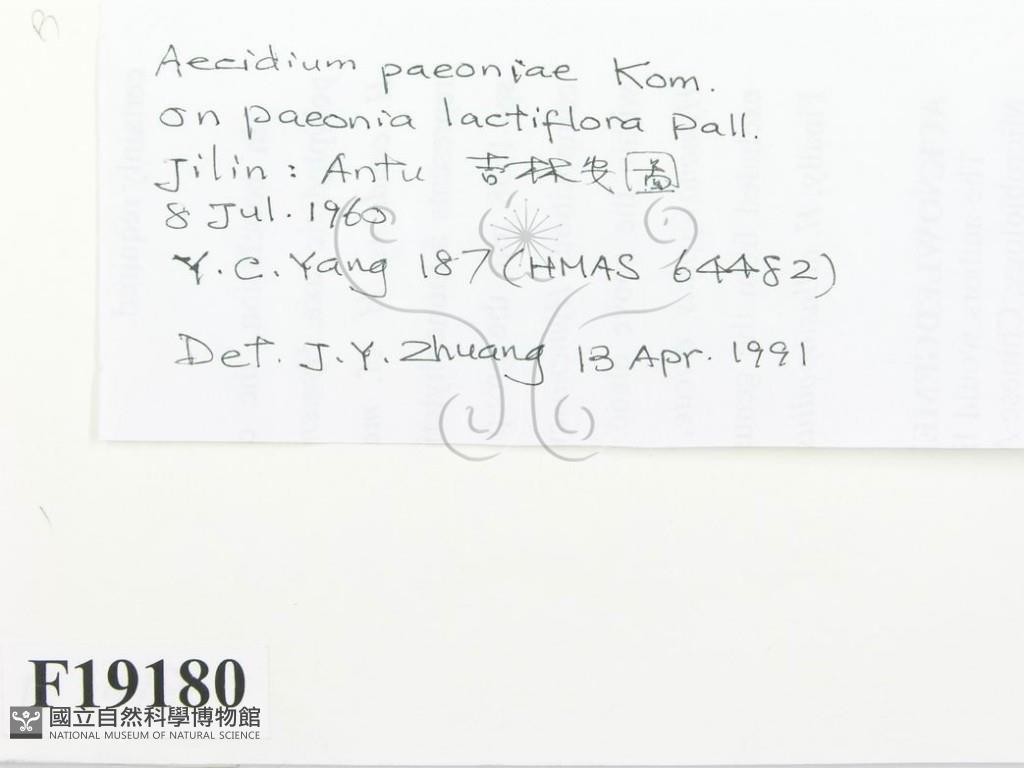 Aecidium paeoniae Kom.
on paeonia lactiflora Pall.
Jilin : Antu 吉林安圖
8 Jul. 1960
Y.C. Yang 187 (HMAS 64482)
Det. J.Y. Zhuang 13 Apr. 1991
F19180
國立自然科學博物館
NATIONAL MUSEUM OF NATURAL SCIENCE